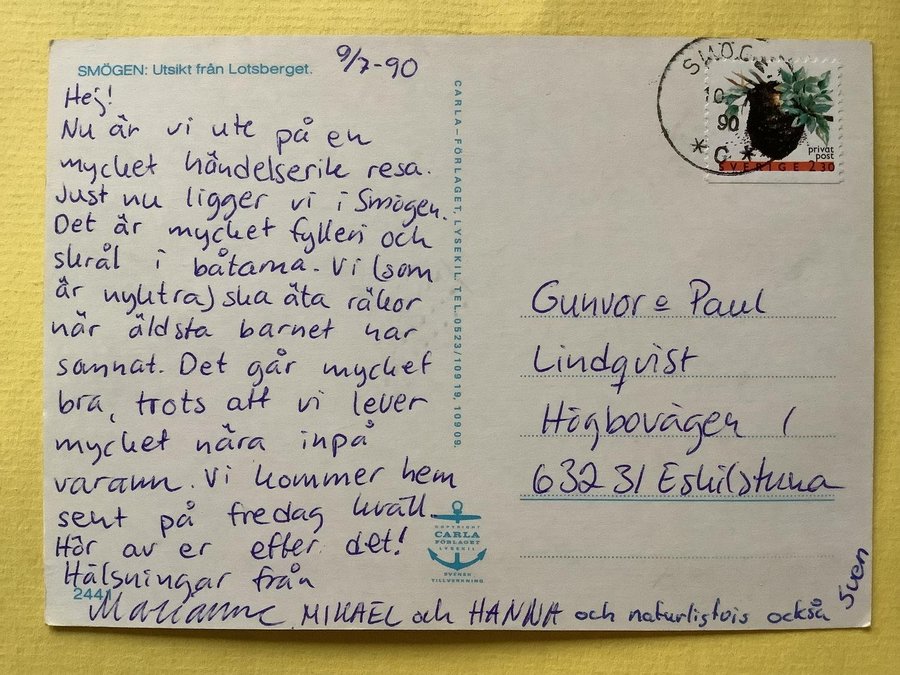 SMÖGEN: Utsikt från Lotsberget.
9/7-90
Hej!
Nu är vi ute på en
mycket händelserik resa.
Just nu ligger vi i Smögen.
Det är mycket fylleri och
skrål i båtarna. Vi (som
är nyktra) ska äta räkor
när äldsta barnet har
somnat. Det går mycket
bra, trots att vi lever
mycket nära inpå
varann. Vi kommer hem
sent på fredag kväll.
Hör av er efter det!
Hälsningar från
Marianne MIKAEL och HANNA och naturligtvis också
Sven
2441
CARLA-FÖRLAGET, LYSEKIL. TEL. 0523/109 19, 109 09.
COPYRIGHT
CARLA
FÖRLAGET
LYSEKIL
SVENSK
TILLVERKNING
SMÖGEN
10
90
* C *
privat
post
SVERIGE 2.30
Gunvor o Paul
Lindqvist
Högbovägen 1
632 31 Eskilstuna